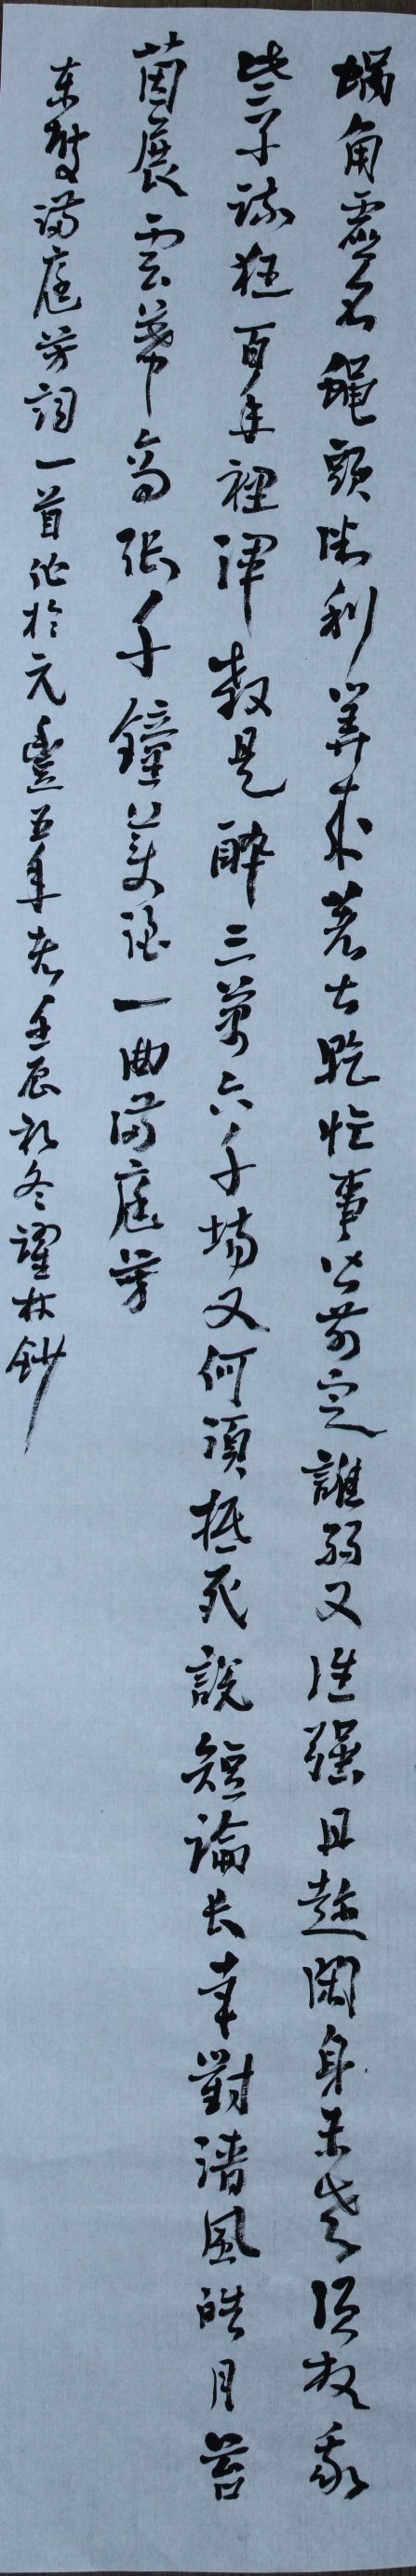 蝸角虛名蠅頭微利算來著甚乾忙事皆前定誰弱又誰強且趁閑身未老須放我
些子疏狂百年裡渾教是醉三萬六千場又何須抵死說短論長幸對清風皓月苔
茵展雲幕高張千鐘美酒一曲滿庭芳
東坡滿庭芳詞一首作於元豐五年壬辰初冬躍林鈔